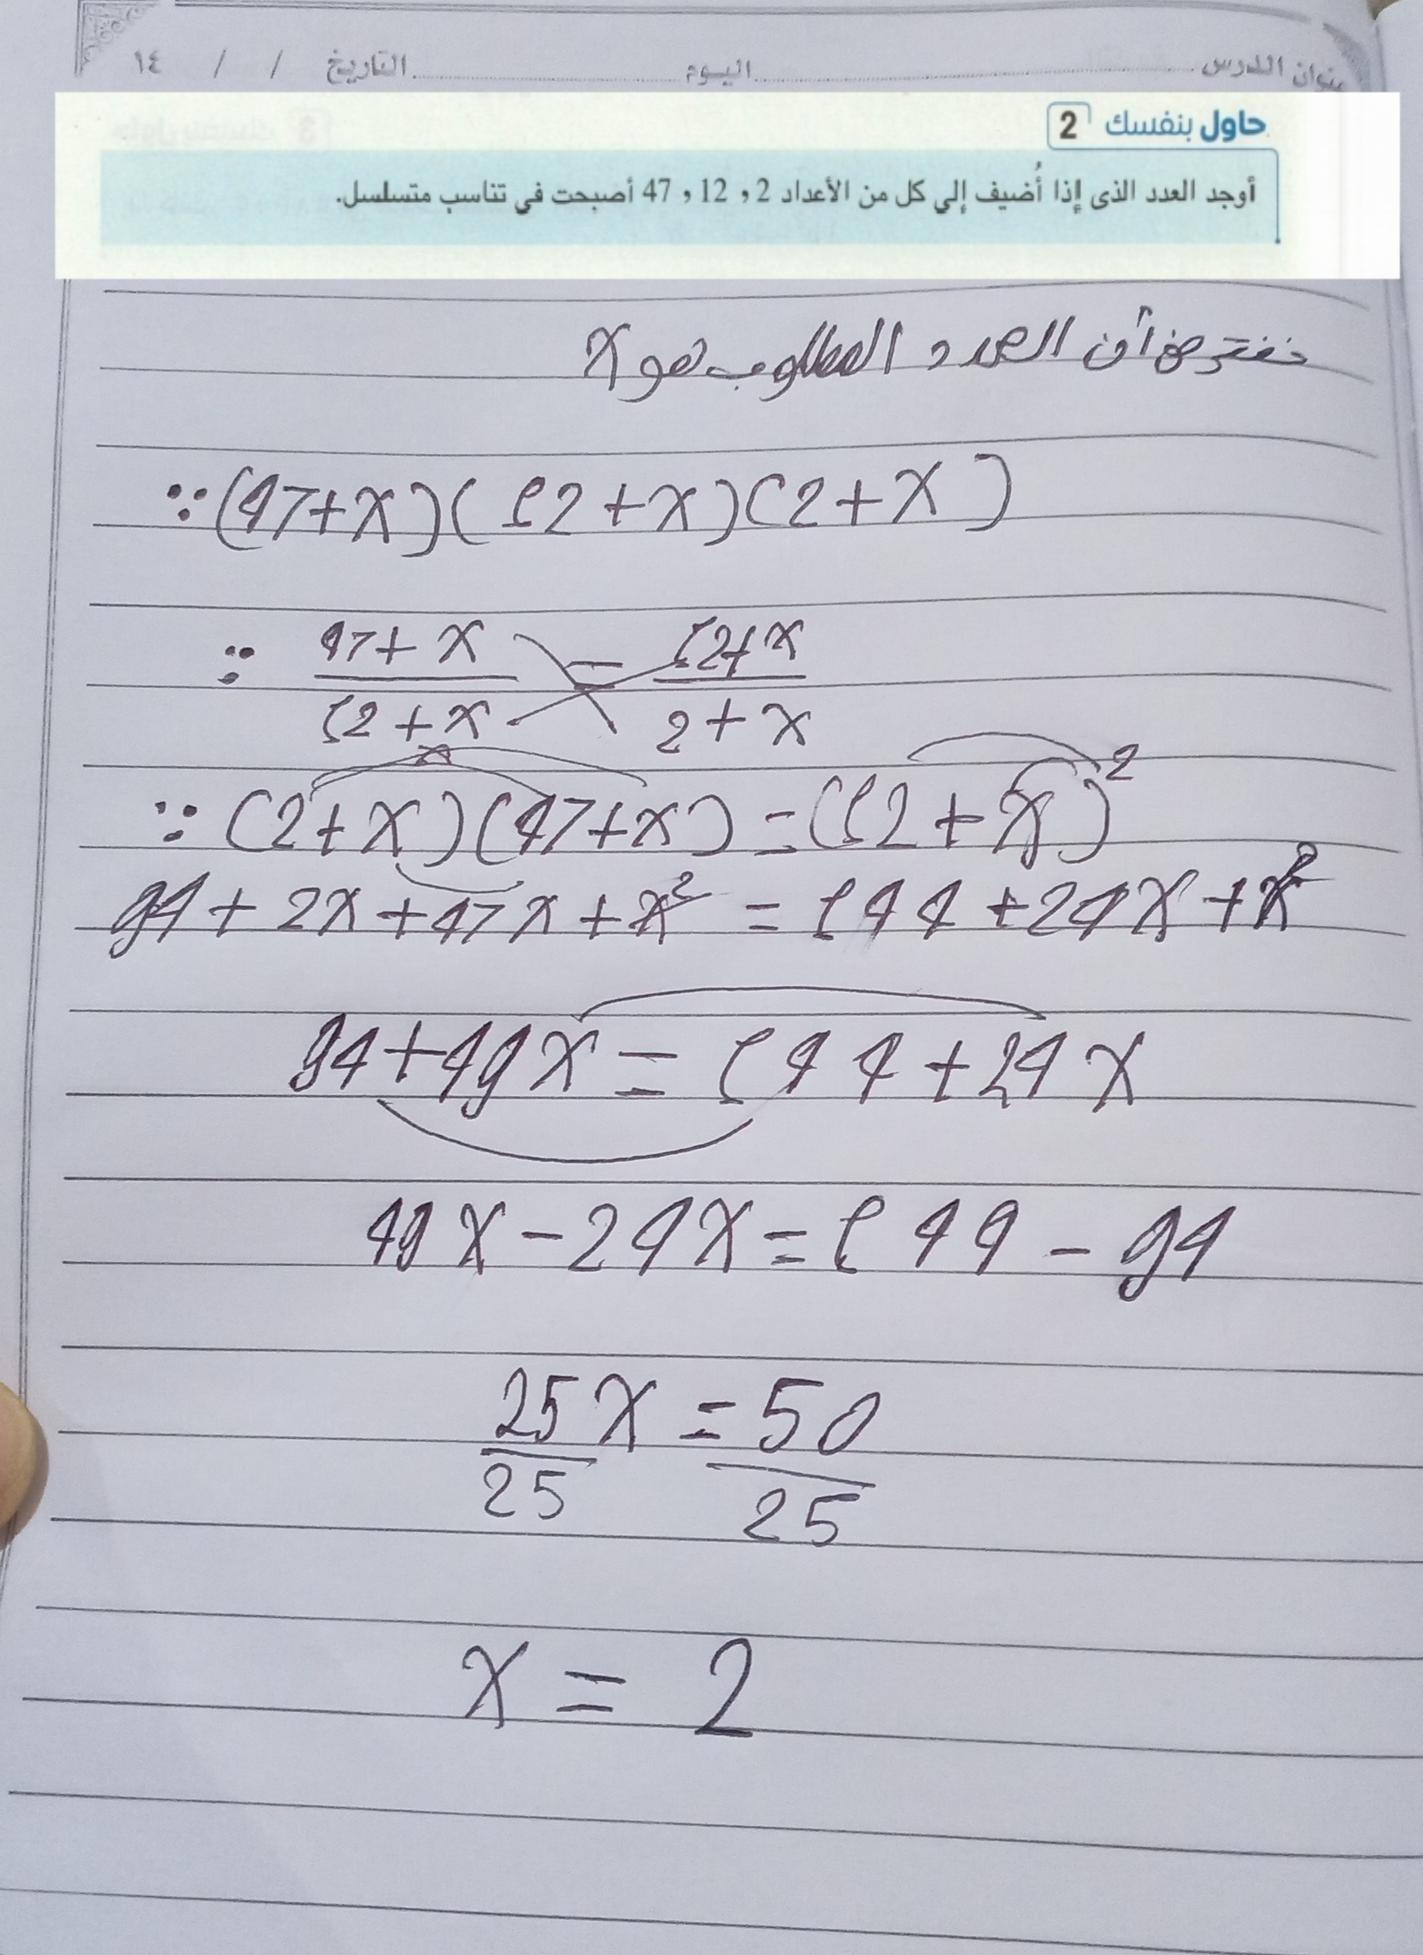 عنوان الدرس اليوم التاريخ / / ١٤
حاول بنفسك 2
أوجد العدد الذى إذا أُضيف إلى كل من الأعداد 2 ، 12 ، 47 أصبحت في تناسب متسلسل.
نفترض أن العدد المطلوب هو x
∵ (47+x)(12+x)(2+x)
∵ \frac{47+x}{12+x} = \frac{12+x}{2+x}
∵ (2+x)(47+x) = (12+x)²
94+2x+47x+x² = 144+24x+x²
94+49x = 144+24x
49x-24x = 144-94
\frac{25x}{25} = \frac{50}{25}
x = 2